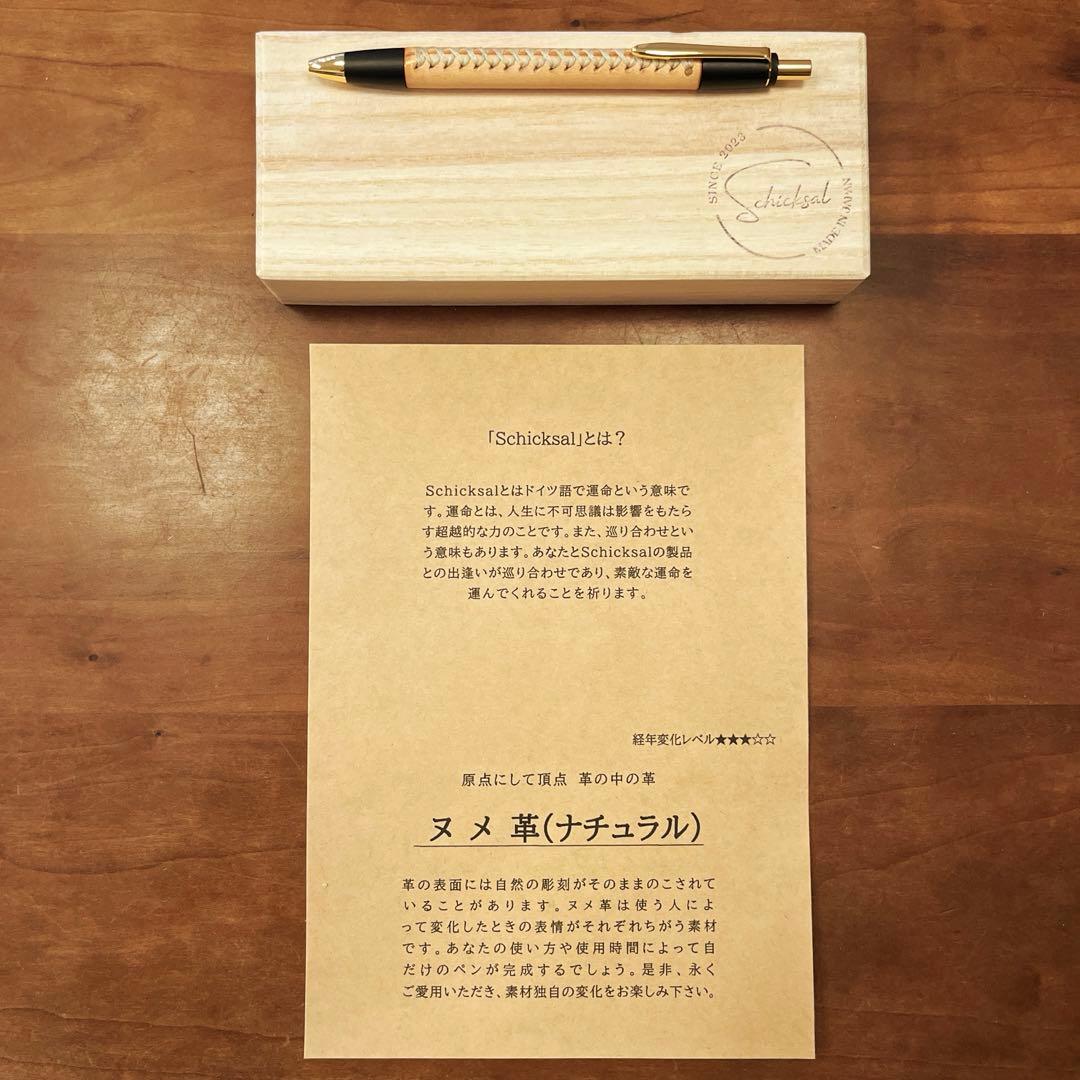 SINCE 2023
Schicksal
MADE IN JAPAN
「Schicksal」とは？
Schicksalとはドイツ語で運命という意味で
す。運命とは、人生に不可思議は影響をもたら
す超越的な力のことです。また、巡り合わせとい
う意味もあります。あなたとSchicksalの製品
との出逢いが巡り合わせであり、素敵な運命を
運んでくれることを祈ります。
経年変化レベル★★★☆☆
原点にして頂点 革の中の革
ヌメ革(ナチュラル)
革の表面には自然の彫刻がそのままのこされて
いることがあります。ヌメ革は使う人によ
って変化したときの表情がそれぞれちがう素材
です。あなたの使い方や使用時間によって自
だけのペンが完成するでしょう。是非、永く
ご愛用いただき、素材独自の変化をお楽しみ下さい。